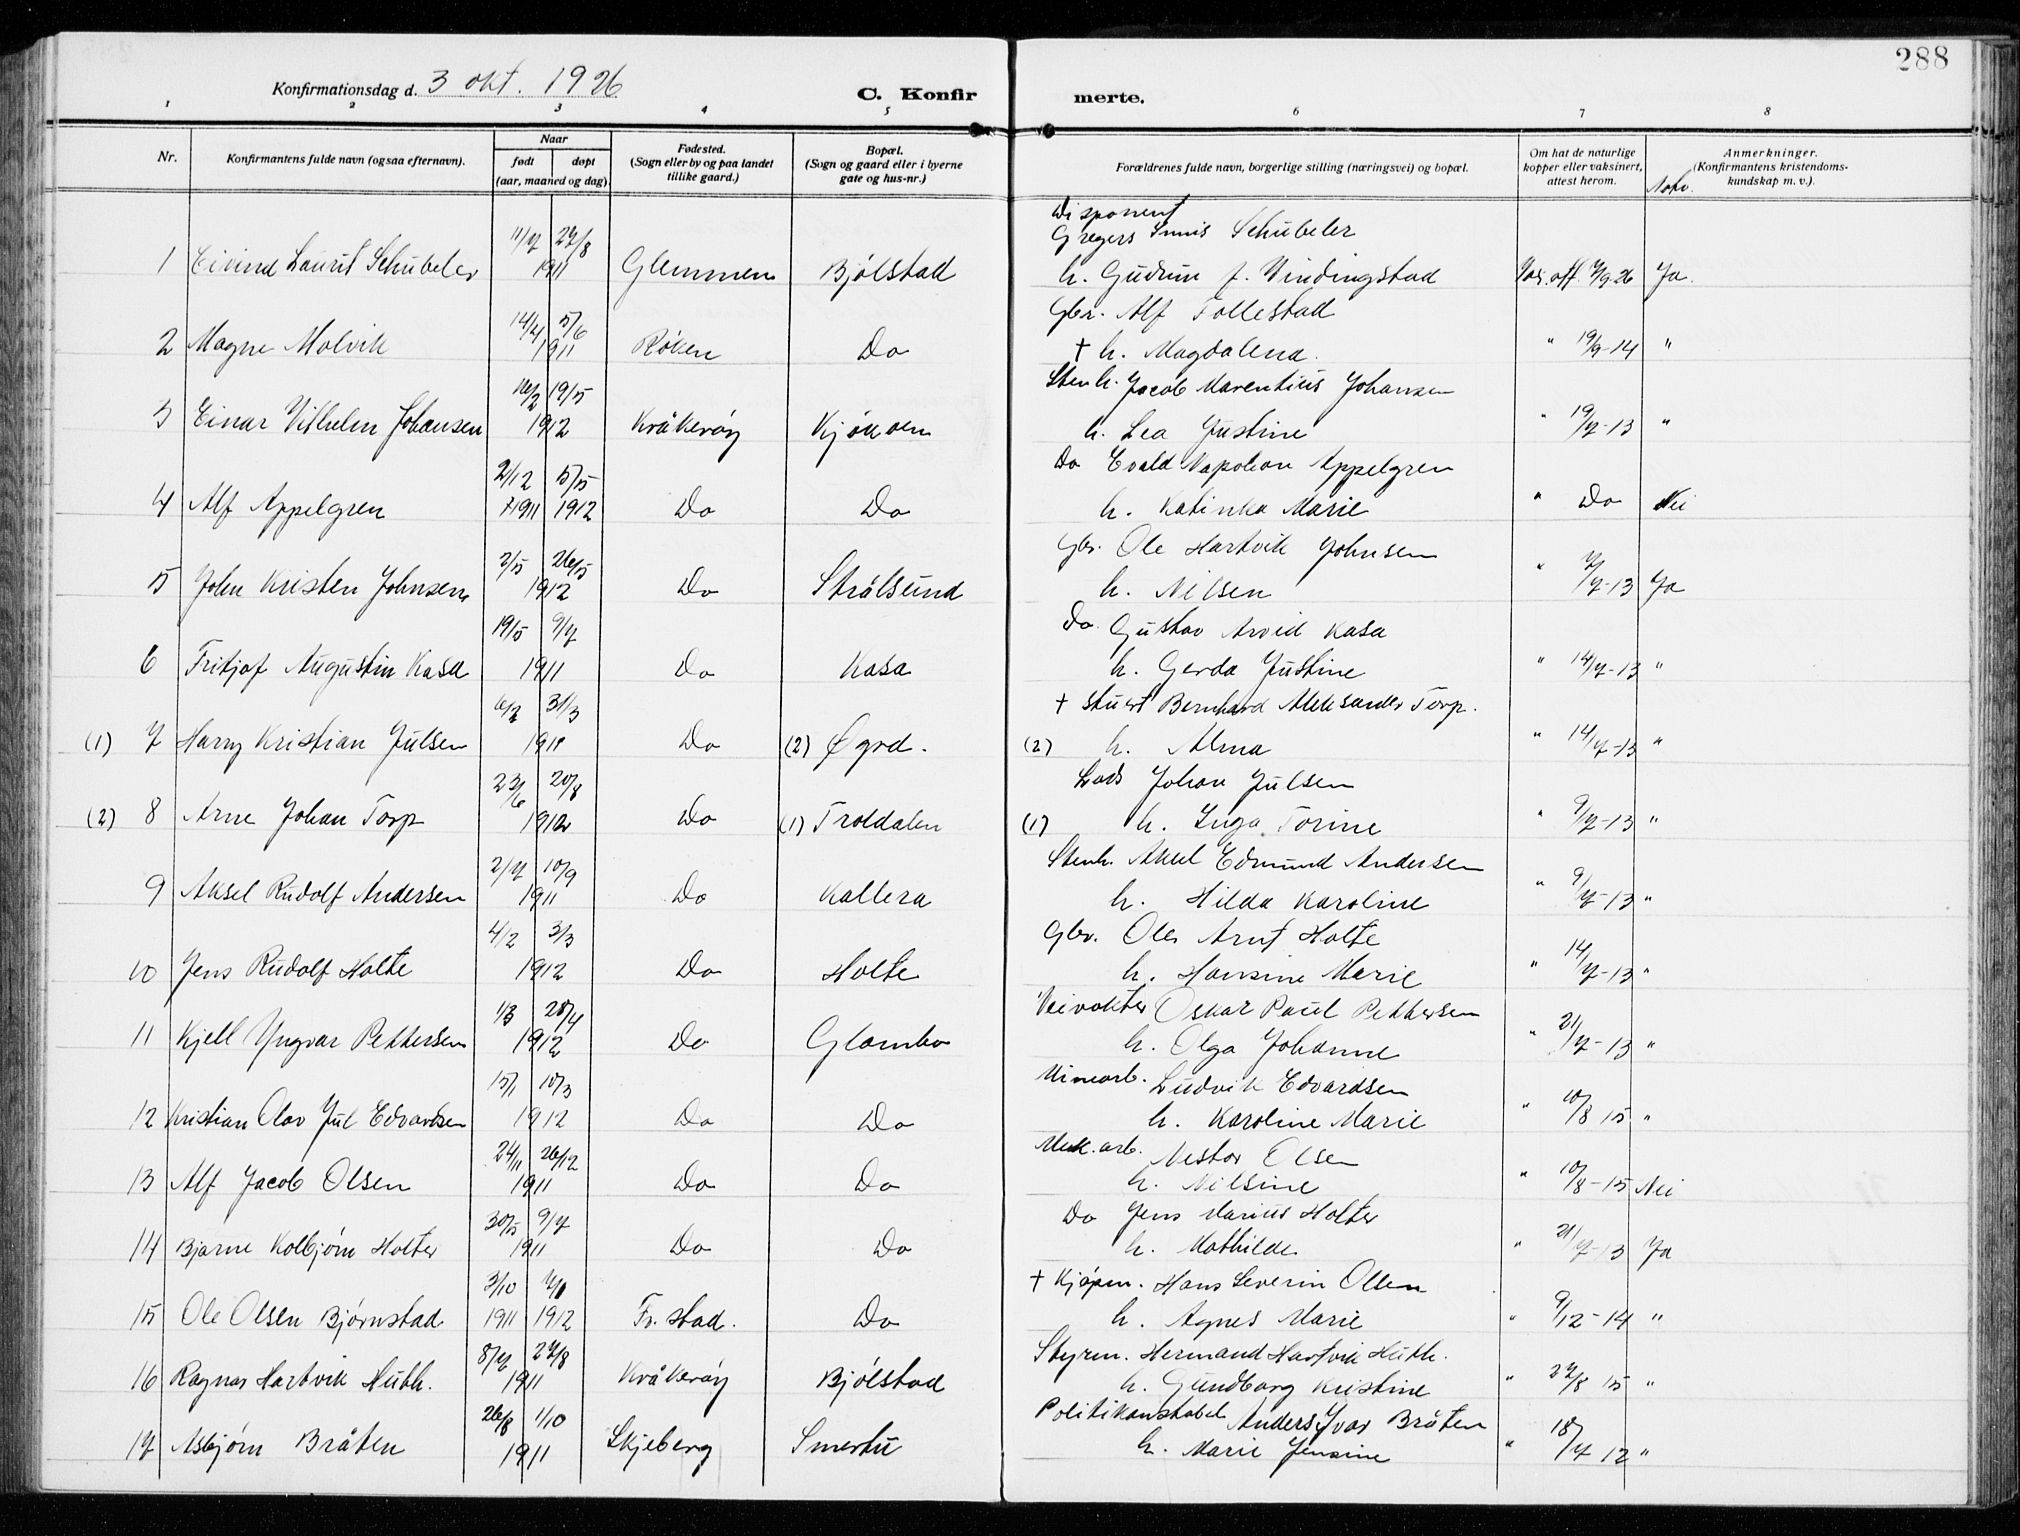 288
Konfirmationsdag d. 3 okt. 1926
C. Konfir merte.
1 2 3 4 5 6 7 8
Nr.
Konfirmantens fulde navn (ogsaa efternavn).
Naar
født døpt
(aar, maaned og dag).
Fødested.
(Sogn eller by og paa landet
tillike gaard.)
Bopæl.
(Sogn og gaard eller i byerne
gate og hus-nr.)
Forældrenes fulde navn, borgerlige stilling (næringsvei) og bopæl.
Om hat de naturlige
kopper eller vaksinert,
attest herom.
Anmerkninger.
(Konfirmantens kristendoms-
kundskap m. v.).
Disponent
11/7 27/8 Gregers Schübeler
1 Eivind Laurit Schübeler 1911 Glemmen Bjølstad h. Gudrun f. Vindingstad 26 Ja.
14/4 5/6 Gbr. Alf Follestad
2 Magne Molvik 1911 Røken Do † h. Magdalena. " 19/9-14 "
16/2 19/5 Stenh. Jacob Marentius Johansen
3 Einar Vilhelm Johansen 1912 Kråkerøy Kjøkøen h. Lea Justine " 19/7-13 "
2/12 5/5 Do Evald Napoleon Appelgren
4 Alf Appelgren 1911 1912 Do Do h. Katinka Marie " Do Nei
2/5 26/5 Gbr. Ole Hartvik Johnsen
5 John Kristen Johnsen 1912 Do Strålsund h. Nilsen " 7/7-13 Ja
19/5 9/7 Do. Gustav Arvid Kasa
6 Fritjof Augustin Kasa 1911 Do Kasa h. Gerda Justine " 14/7-13 "
6/2 31/3 † Stuert Bernhard Aleksander Torp.
(1) 7 Harry Kristian Julsen Do (2) Øgrd. (2) h. Alma " 14/7-13 "
23/6 20/8 Lods Johan Julsen
(2) 8 Arne Johan Torp Do (1) Troldalen (1) h. Inga Torine " 9/7-13 "
2/7 10/9 Stenh. Aksel Edmund Andersen
9 Aksel Rudolf Andersen 1911 Do Kallera h. Hilda Karoline " 9/7-13 "
4/2 3/3 Gbr. Ole Arnt Holte
10 Jens Rudolf Holte 1912 Do Holte h. Hansine Marie " 14/7-13 "
1/3 28/4 Veivokter Oskar Paul Pettersen
11 Kjell Yngvar Pettersen 1912 Do Glombo h. Olga Johanne " 21/7-13 "
15/1 10/3 Minearb. Ludvik Edvardsen
12 Kristian Olav Jul Edvardsen 1912 Do Do h. Karoline Marie " 10/8 15 "
24/11 26/12 Mek. arb. Nestor Olsen
13 Alf Jacob Olsen 1911 Do Do h. Nilsine " 10/8-15 Nei
30/5 9/7 Do Jens Marius Holter
14 Bjarne Kolbjørn Holter 1911 Do Do h. Mathilde " 21/7-13 Ja
3/10 † Kjøpm. Hans Severin Olsen
15 Ole Olsen Bjørnstad 1911 1912 Fr. stad. Do h. Agnes Marie " 9/12-14 "
8/7 27/8 Styrm. Hermand Hartvik Huth.
16 Ragnar Hartvik Huth. 1911 Kråkerøy Bjølstad h. Gundborg Kristine " 27/8 15 "
26/8 1/10 Politikonstabel Anders Ivar Bråten
17 Asbjørn Bråten 1911 Skjeberg Smertu h. Marie Jensine " 18/7 12 "